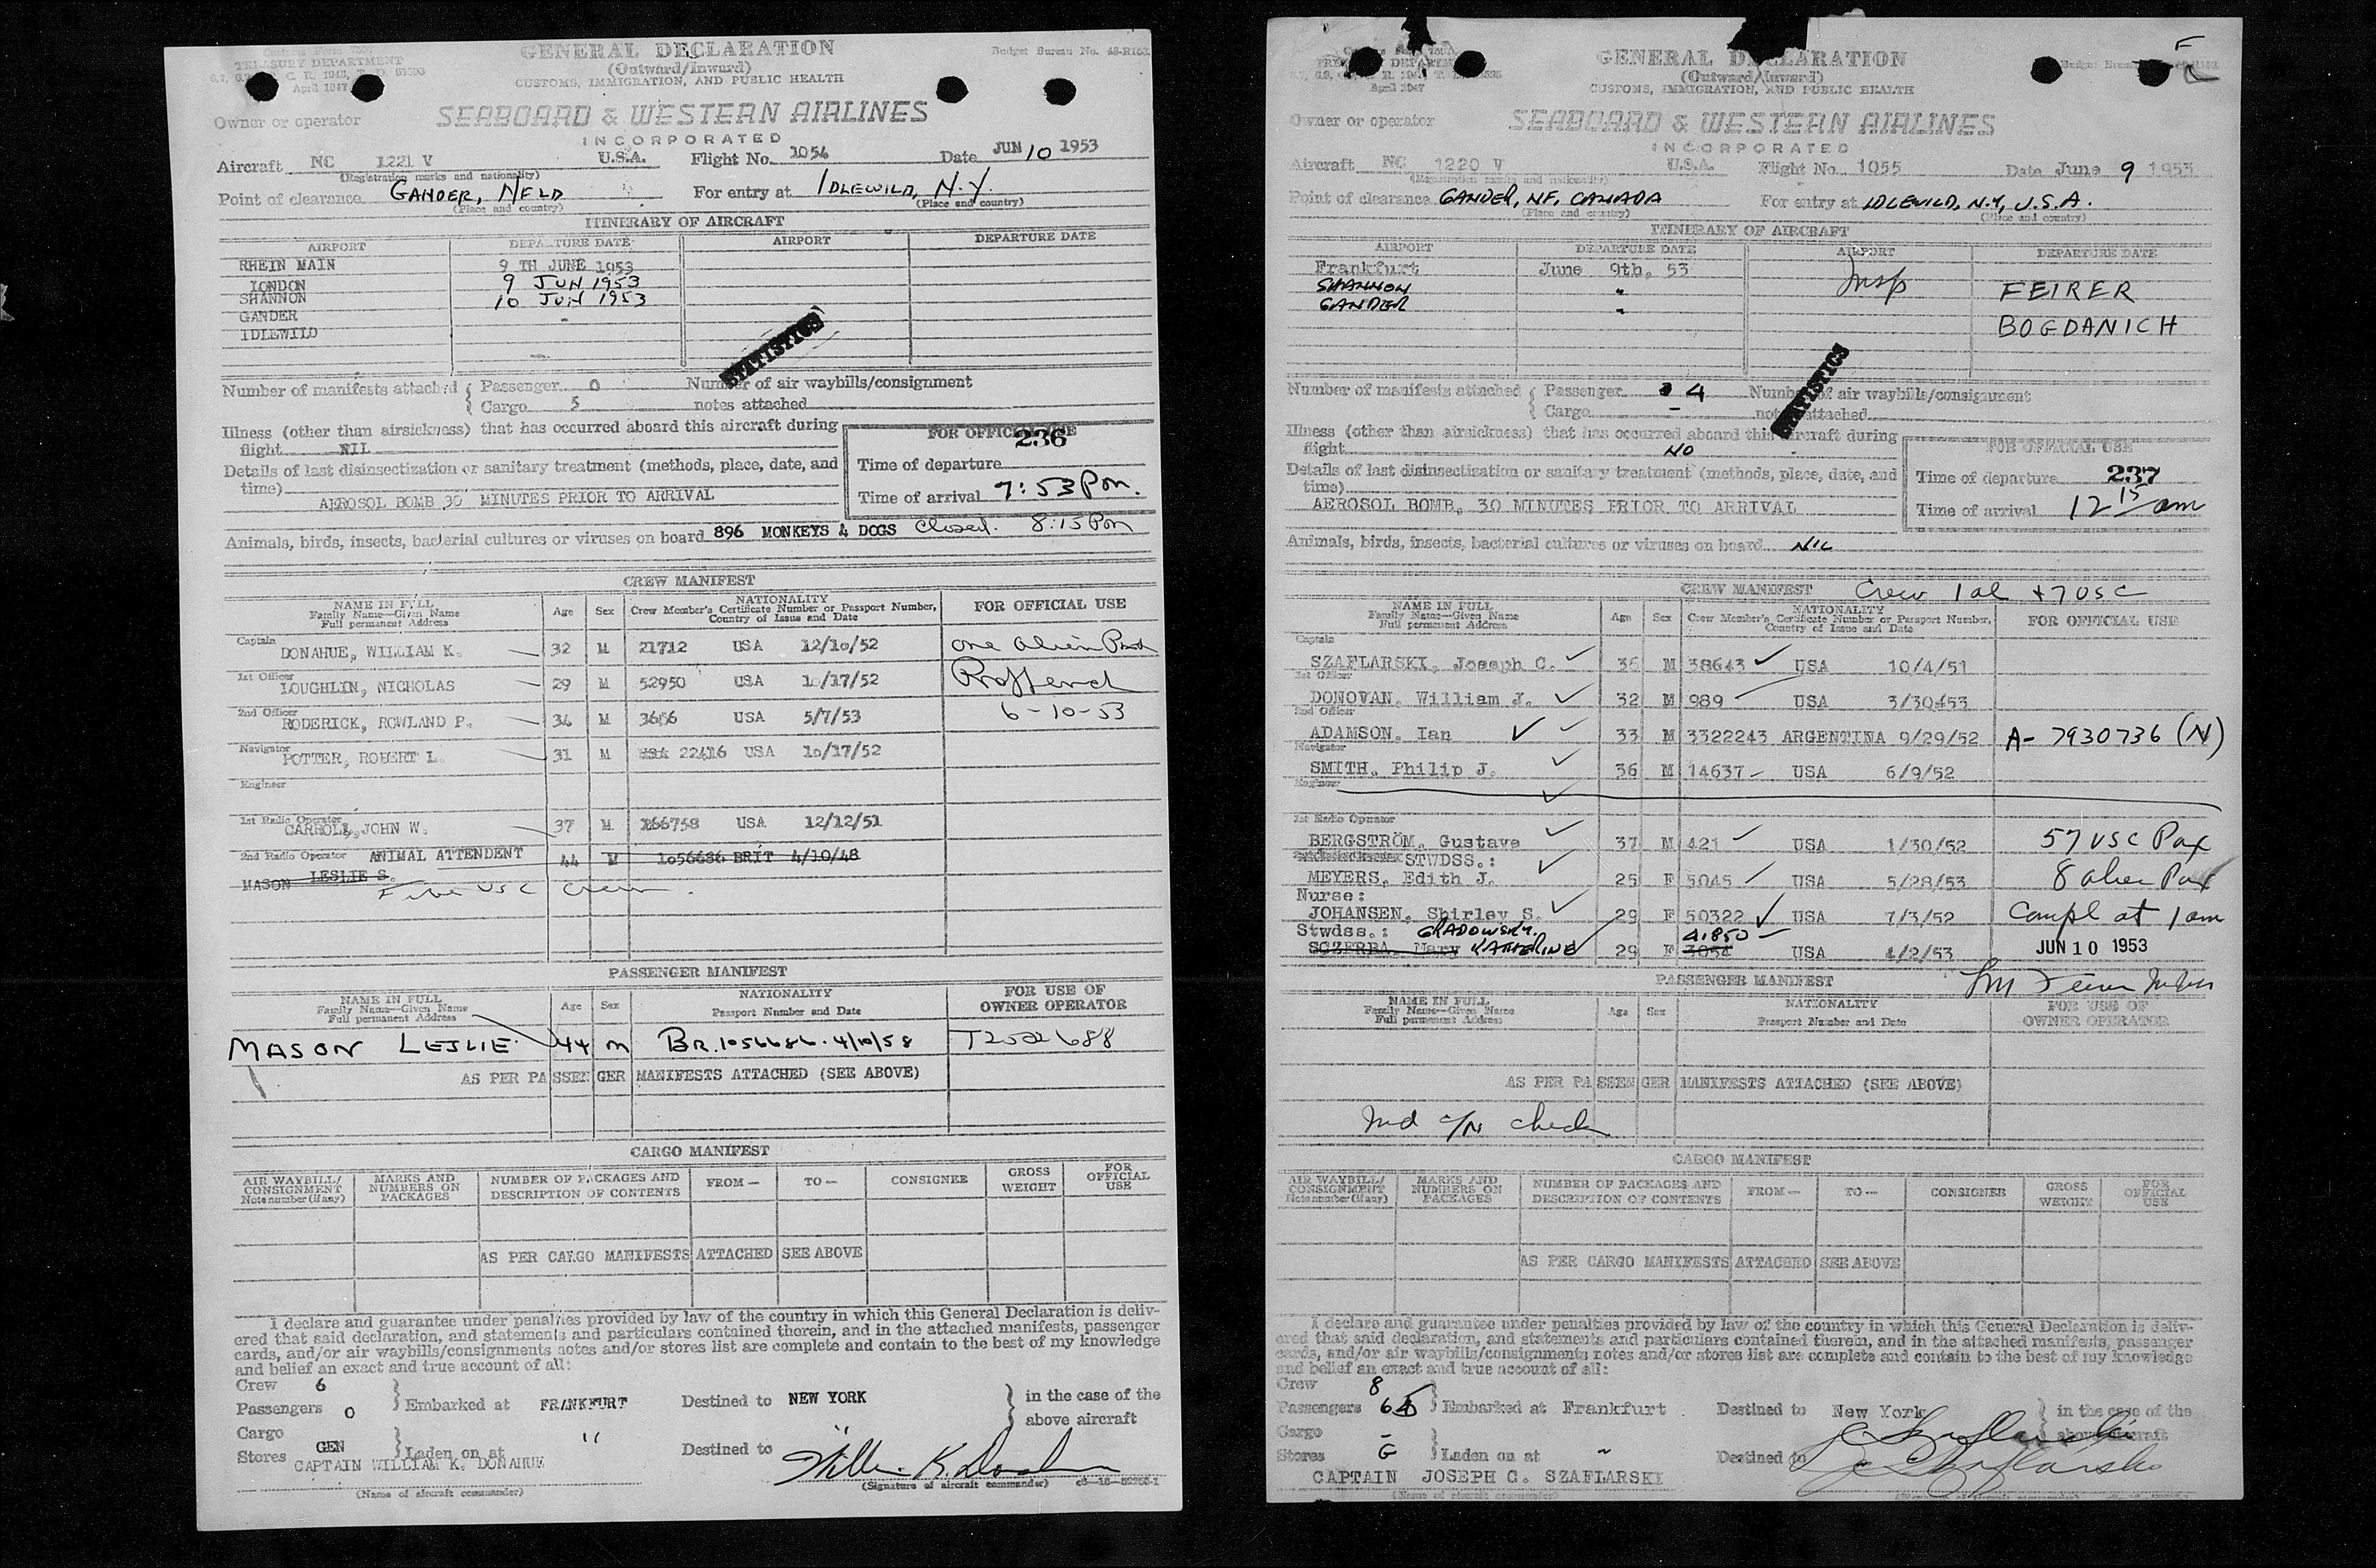 GENERAL DECLARATION
(Outward/Inward)
CUSTOMS, IMMIGRATION, AND PUBLIC HEALTH
TREASURY DEPARTMENT
April 1947
Budget Bureau No.
SEABOARD & WESTERN AIRLINES
INCORPORATED
Owner or operator
Aircraft NC 1221 V U.S.A. Flight No. 1054 Date JUN 10 1953
(Registration marks and nationality)
Point of clearance GANDER, NFLD For entry at IDLEWILD, N.Y.
(Place and country) (Place and country)
ITINERARY OF AIRCRAFT
AIRPORT DEPARTURE DATE AIRPORT DEPARTURE DATE
RHEIN MAIN 9 TH JUNE 1953
LONDON 9 JUN 1953
SHANNON 10 JUN 1953
GANDER
IDLEWILD
STATISTICS
Number of manifests attached { Passenger 0 Number of air waybills/consignment
Cargo 5 notes attached
Illness (other than airsickness) that has occurred aboard this aircraft during
flight NIL
Details of last disinsectization or sanitary treatment (methods, place, date, and
time)
AEROSOL BOMB 30 MINUTES PRIOR TO ARRIVAL
FOR OFFICIAL USE
236
Time of departure
Time of arrival 7:53 Pm.
Animals, birds, insects, bacterial cultures or viruses on board 896 MONKEYS & DOGS Closed. 8:15 Pm
CREW MANIFEST
NAME IN FULL
Family Name—Given Name
Full permanent Address
Age Sex
NATIONALITY
Crew Member's Certificate Number or Passport Number,
Country of Issue and Date
FOR OFFICIAL USE
Captain
DONAHUE, WILLIAM K. 32 M 21712 USA 12/10/52 one alien
1st Officer
LOUGHLIN, NICHOLAS 29 M 52950 USA 10/17/52
2nd Officer
RODERICK, ROWLAND P. 34 M 3656 USA 5/7/53 6-10-53
Navigator
POTTER, ROBERT L. 31 M USA 22416 USA 10/17/52
Engineer
1st Radio Operator
CARROLL, JOHN W. 37 M 166758 USA 12/12/51
2nd Radio Operator ANIMAL ATTENDENT 44 M 1056686 BRIT 4/10/48
MASON LESLIE S.
Five USC Crew.
PASSENGER MANIFEST
NAME IN FULL
Family Name—Given Name
Full permanent Address
Age Sex
NATIONALITY
Passport Number and Date
FOR USE OF
OWNER OPERATOR
MASON LESLIE 44 M BR. 1056686. 4/10/58
AS PER PASSENGER MANIFESTS ATTACHED (SEE ABOVE)
CARGO MANIFEST
AIR WAYBILL/
CONSIGNMENT
Note number (if any)
MARKS AND
NUMBERS ON
PACKAGES
NUMBER OF PACKAGES AND
DESCRIPTION OF CONTENTS
FROM— TO— CONSIGNEE
GROSS
WEIGHT
FOR
OFFICIAL
USE
AS PER CARGO MANIFESTS ATTACHED SEE ABOVE
I declare and guarantee under penalties provided by law of the country in which this General Declaration is deliv-
ered that said declaration, and statements and particulars contained therein, and in the attached manifests, passenger
cards, and/or air waybills/consignments notes and/or stores list are complete and contain to the best of my knowledge
and belief an exact and true account of all:
Crew 6
Passengers 0 Embarked at FRANKFURT Destined to NEW YORK in the case of the
above aircraft
Cargo
Stores GEN Laden on at " Destined to "
CAPTAIN WILLIAM K. DONAHUE
(Name of aircraft commander)
William K. Donahue
(Signature of aircraft commander)
GENERAL DECLARATION
(Outward/Inward)
CUSTOMS, IMMIGRATION, AND PUBLIC HEALTH
April 1947
SEABOARD & WESTERN AIRLINES
INCORPORATED
Owner or operator
Aircraft NC 1220 V U.S.A. Flight No. 1055 Date June 9 1953
(Registration marks and nationality)
Point of clearance GANDER, NF, CANADA For entry at IDLEWILD, N.Y, U.S.A.
(Place and country) (Place and country)
ITINERARY OF AIRCRAFT
AIRPORT DEPARTURE DATE AIRPORT DEPARTURE DATE
Frankfurt June 9th, 53 Insp
SHANNON " FEIRER
GANDER "
BOGDANICH
STATISTICS
Number of manifests attached { Passenger 4 Number of air waybills/consignment
Cargo - notes attached
Illness (other than airsickness) that has occurred aboard this aircraft during
flight NO
Details of last disinsectization or sanitary treatment (methods, place, date, and
time)
AEROSOL BOMB, 30 MINUTES PRIOR TO ARRIVAL
FOR OFFICIAL USE
237
Time of departure
Time of arrival 12 15 am
Animals, birds, insects, bacterial cultures or viruses on board NIL
CREW MANIFEST Crew 1 al + 7 USC
NAME IN FULL
Family Name—Given Name
Full permanent Address
Age Sex
NATIONALITY
Crew Member's Certificate Number or Passport Number,
Country of Issue and Date
FOR OFFICIAL USE
Captain
SZAFLARSKI, Joseph C. 36 M 38643 USA 10/4/51
1st Officer
DONOVAN, William J. 32 M 989 USA 3/30/53
2nd Officer
ADAMSON, Ian 33 M 3322243 ARGENTINA 9/29/52 A- 7930736 (N)
Navigator
SMITH, Philip J. 36 M 14637 USA 6/9/52
Engineer
1st Radio Operator
BERGSTRÖM, Gustave 37 M 421 USA 1/30/52 57 USC Pax
STWDSS.:
MEYERS, Edith J. 25 F 5045 USA 5/28/53 8 alien Pax
Nurse:
JOHANSEN, Shirley S. 29 F 50322 USA 7/3/52 Compl at 1 am
Stwdss.: GRADOWSKY. 41850
SCZERBA, Mary KATHERINE 29 F 3054 USA 4/2/53 JUN 10 1953
PASSENGER MANIFEST
NAME IN FULL
Family Name—Given Name
Full permanent Address
Age Sex
NATIONALITY
Passport Number and Date
FOR USE OF
OWNER OPERATOR
AS PER PASSENGER MANIFESTS ATTACHED (SEE ABOVE)
check
CARGO MANIFEST
AIR WAYBILL/
CONSIGNMENT
Note number (if any)
MARKS AND
NUMBERS ON
PACKAGES
NUMBER OF PACKAGES AND
DESCRIPTION OF CONTENTS
FROM— TO— CONSIGNEE
GROSS
WEIGHT
FOR
OFFICIAL
USE
AS PER CARGO MANIFESTS ATTACHED SEE ABOVE
I declare and guarantee under penalties provided by law of the country in which this General Declaration is deliv-
ered that said declaration, and statements and particulars contained therein, and in the attached manifests, passenger
cards, and/or air waybills/consignments notes and/or stores list are complete and contain to the best of my knowledge
and belief an exact and true account of all:
Crew 8
Passengers 65 Embarked at Frankfurt Destined to New York in the case of the
above aircraft
Cargo -
Stores G Laden on at " Destined to
CAPTAIN JOSEPH C. SZAFLARSKI
(Name of aircraft commander)